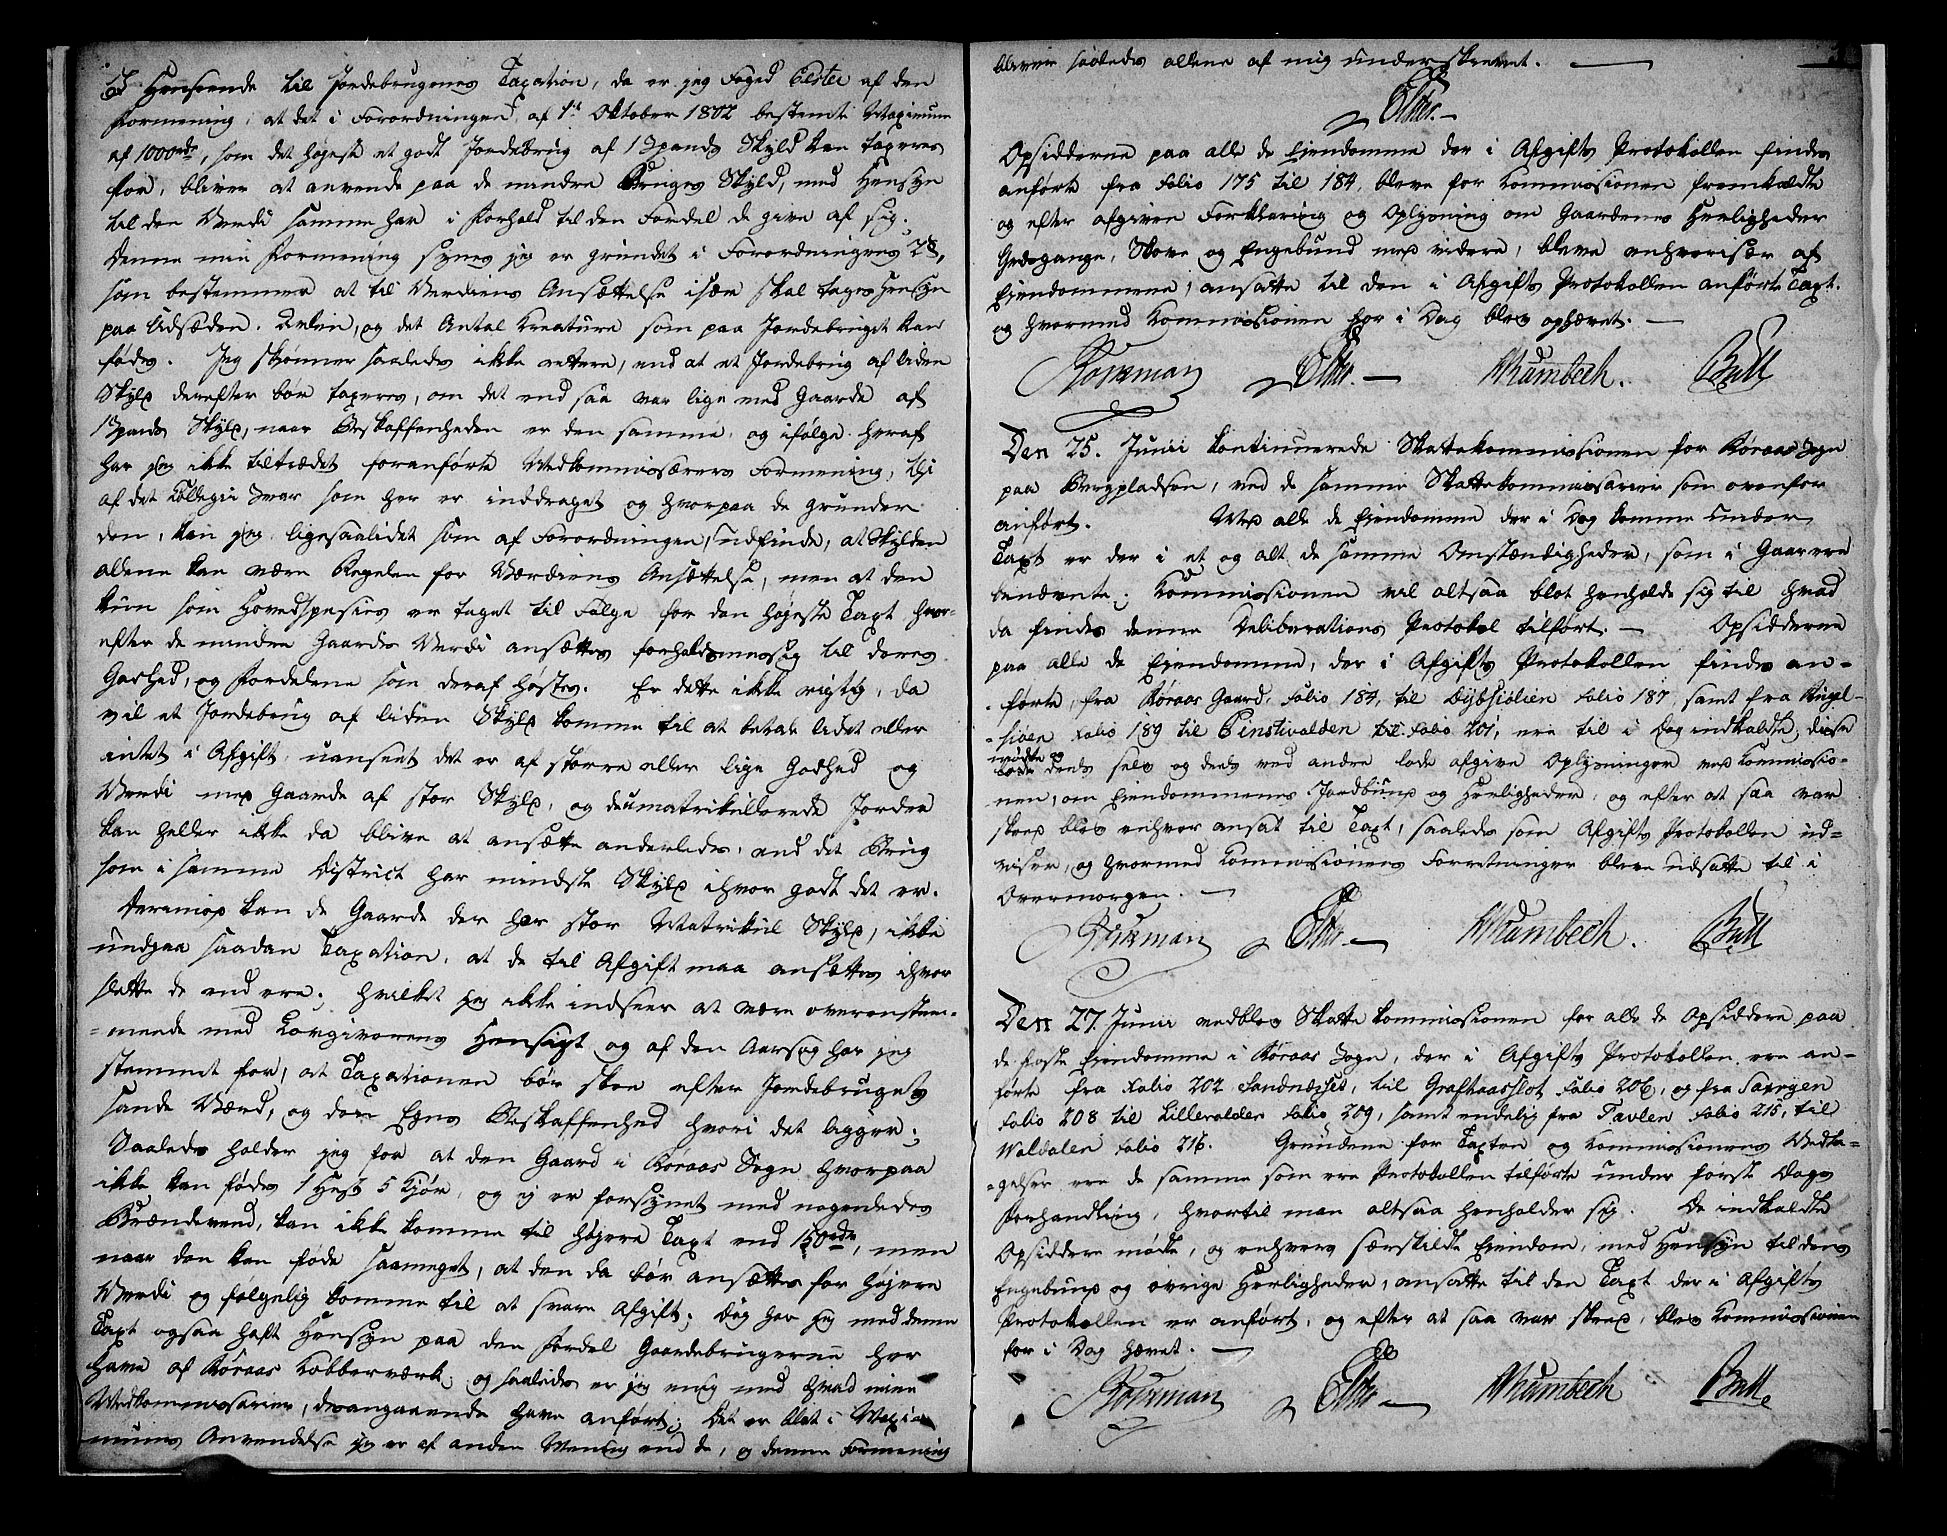 I Henseende til Jordebrugenes Taxation, da er jeg Foged Elster af den
Formening, at det i Forordningen af 1te Oktober 1802 bestemte Maximum
af 1000rdr, som det højeste et godt Jordebrug af 1 Spands Skyld kan taxeres
for, bliver at anvende paa de mindre Bruges Skyld, med Hensyn
til den Værdi samme har i Forhold til den Fordel de give af sig.
Denne min Formening synes jeg er grundet i Forordningens 2§,
som bestemmer at til Værdiens Ansættelse især skal tages Hensyn
paa Udsæden, Avlen, og det Antal Kreature som paa Jordebruget kan
fødes. Jeg skønner saaledes ikke rettere, end at et Jordebrug af liden
Skyld derefter bør taxeres, om det end saa var lige med Gaarde af
1 Spands Skyld, naar Beskaffenheden er den samme, og ifølge heraf
har jeg ikke tiltrædet foranførte Medkommissærers Formening, thi
af det Collegii Svar som her er inddraget og hvorpaa de grunder
den, kan jeg ligesaalidet som af Forordningen, udfinde, at Skylden
allene kan være Regelen for Værdiens Ansættelse, men at den
kun som Hovedspesies er taget til Følge for den højeste Taxt hvor-
efter de mindre Gaardes Værdi ansættes forholdsmessig til deres
Godhed, og Fordelene som deraf høstes. Er dette ikke rigtig, da
vil et Jordebrug af liden Skyld komme til at betale lidet eller
intet i Afgift, uanseet det er af større eller lige Godhed og
Værdi med Gaarde af stor Skyld, og deumatrikullerede Jorder
kan heller ikke da blive at ansætte anderledes, end det Brug
som i samme District har mindste Skyld ihvor godt det er.
Derimod kan de Gaarde der har stor Matrikul Skyld, ikke
undgaa saadan Taxation, at de til Afgift maa ansættes ihvor
slette de end ere; hvilket jeg ikke indseer at være overensstem-
=mende med Lovgiverens Hensigt og af den Aarsag har jeg
stemmet for, at Taxationen bør skee efter Jordebrugets
sande Værd, og den Egns Beskaffenhed hvori det ligger;
Saaledes holder jeg for at den Gaard i Røraas Sogn hvorpaa
ikke kan fødes 1 Hest 5 Kjør, og ej er forsynet med nogenledes
Brændeved, kan ikke komme til højere Taxt end 150rdr, men
naar den kan føde saameget, at den da bør ansættes for højere
Værdi og følgelig komme til at svare Afgift; dog har jeg med denne
Taxt ogsaa haft Hensyn paa den Fordel Gaardebrugerne her
have af Røraas Kobberværk, og saaledes er jeg enig med hvad mine
Medkommissarier, desangaaende have anført; det er blot i Maxi-
mums Anvendelse jeg er af anden Mening end de, og denne Formening
bliver saaledes allene af mig underskrevet.
Elster.
Opsidderne paa alle de Ejendomme der i Afgifts Protokollen findes
anførte fra Folio 175 til 184, bleve for Kommissionen fremkaldte
og efter afgiven Forklaring og Oplysning om Gaardenes Herligheder
Havegange, Skove og Engebund med videre, bleve enhverisær af
Ejendommene, ansatte til den i Afgifts Protokollen anførte Taxt.
og hvormed Kommissionen for i Dag blev ophævet.
Elster. Krumbech. Bull
Den 25. Junii kontinuerede Skattekommissionen for Røraas Sogn
paa Bergpladsen, ved de samme Skattekommissarier som ovenfor
anført. Med alle de Ejendomme der i Dag komme under
Taxt er der i et og alt de samme Omstændigheder, som i Gaar ere
benævnte; Kommissionen vil altsaa blot henholde sig til hvad
da findes denne Deliberations Protokol tilført. Opsidderne
paa alle de Ejendomme, der i Afgifts Protokollen findes an-
førte, fra Røraas Gaard, Folio 184, til Dybsiølien Folio 187, samt fra Kugel-
=siøen Folio 189 til Finstivolden til Folio 201, ere til i Dag indkaldte, disse
mødte deels selv og deels ved andre lode afgive Oplysninger ved Kommissio-
nen, om Ejendommenes Jordbund og Herligheder, og efter at saa var
skeed blev enhver ansat til Taxt, saaledes som Afgifts Protokollen ud-
viser, og hvormed Kommissionens Forretninger bleve udsatte til i
Overmorgen.
Elster Krumbech. Bull
Den 27. Junii vedblev Skatte kommissionen for alle de Opsiddere paa
de fleste Ejendomme i Røraas Sogn, der i Afgifts Protokollen ere an-
førte fra Folio 202 Sandnæsset, til Grafkaasslot Folio 206, og fra
Folio 208 til Lillevolden Folio 209, samt endelig fra Tavlen Folio 215, til
Waldalen Folio 216. Grundene for Taxten og Kommissionens Vedta-
=gelser ere de samme som ere Protokollen tilførte under første Dags
Forhandling, hvortil man altsaa henholder sig. De indkaldte
Opsiddere mødte, og enhvers særskilte Ejendom, med Hensyn til dens
Engebund og øvrige Herligheder, ansatte til den Taxt der i Afgifts
Protokollen er anført, og efter at saa var skeed, blev Kommissionen
for i Dag hævet.
Elster Krumbech Bull